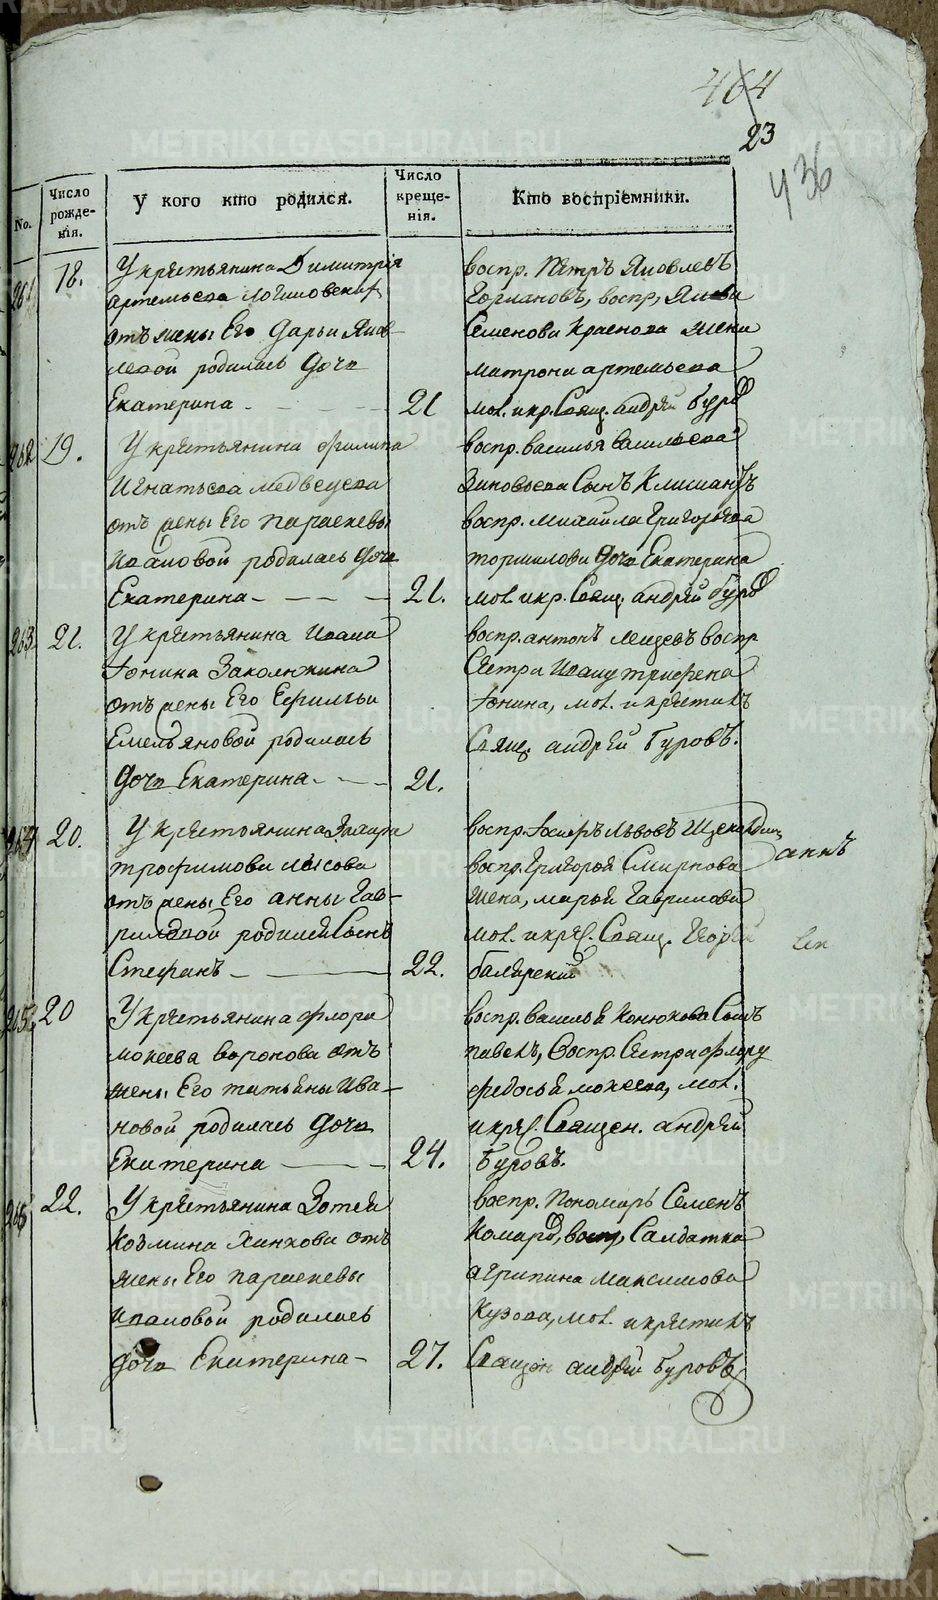 METRIKI.GASO-URAL.RU
464
23
436
No.
Число рожде-нія.
У кого кто родился.
Число креще-нія.
Кто воспріемники.
261
18.
У крестьянина Димитрія
артемьева
отъ жены Его Дарьи Яков-
левой родилась дочь
Екатерина
21
воспр. Петръ Яковлевъ
воспр. Якова
Семенова Краснова жена
матрона артемьева
мол. и кр. Свящ. андрей Буро
262
19.
У крестьянина филипа
Игнатьева медведева
отъ жены Его параскевы
Ивановой родилась дочь
Екатерина
21.
воспр. василья васильева
Зиновьева Сынъ
воспр. михаила Григорьева
дочь Екатерина
мол. и кр. Свящ. андрей Буро
263
21.
У крестьянина Ивана
Іонина
отъ жены Его
Емельяновой родилась
дочь Екатерина
21.
воспр. антонъ воспр
Сестра Ивану трифена
Іонина, мол. и крестилъ
Свящ. андрей Буровъ.
264
20.
У крестьянина Захара
трофимова лысова
отъ жены Его анны Гав-
риловой родился Сынъ
Стефанъ
22.
воспр. Іосифъ львовъ
воспр. Григорья Смирнова
жена, марья Гаврилова
мол. и крес. Свящ. Георгій
265
20
У крестьянина флора
мокеева воронова отъ
жены Его татьяны Ива-
новой родилась дочь
Екатерина
24.
воспр. василья Конюхова Сынъ
павелъ, воспр. Сестра флору
федосья мокеева, мол.
и крес. Священ. андрей
Буровъ.
266
22.
У крестьянина Зотея
Козмина отъ
жены Его параскевы
Ивановой родилась
дочь Екатерина
27.
воспр. Пономарь Семенъ
Комаро, воспр, Салдатка
агрипина максимова
мол. и крестилъ
Священ андрей Буровъ